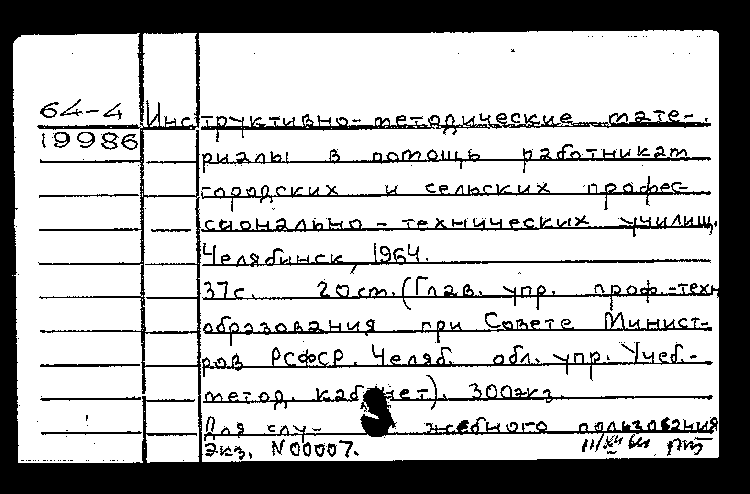 64-4 Инструктивно-методические мате-
19986
риалы в помощь работникам
городских и сельских профес-
сионально-технических училищ.
Челябинск, 1964.
37с. 20см. (Глав. упр. проф.-техн
образования при Совете Минист-
ров РСФСР. Челяб. обл. упр. Учеб.-
метод. кабинет). 300экз.
Для слу- жебного пользования
Экз. N00007.